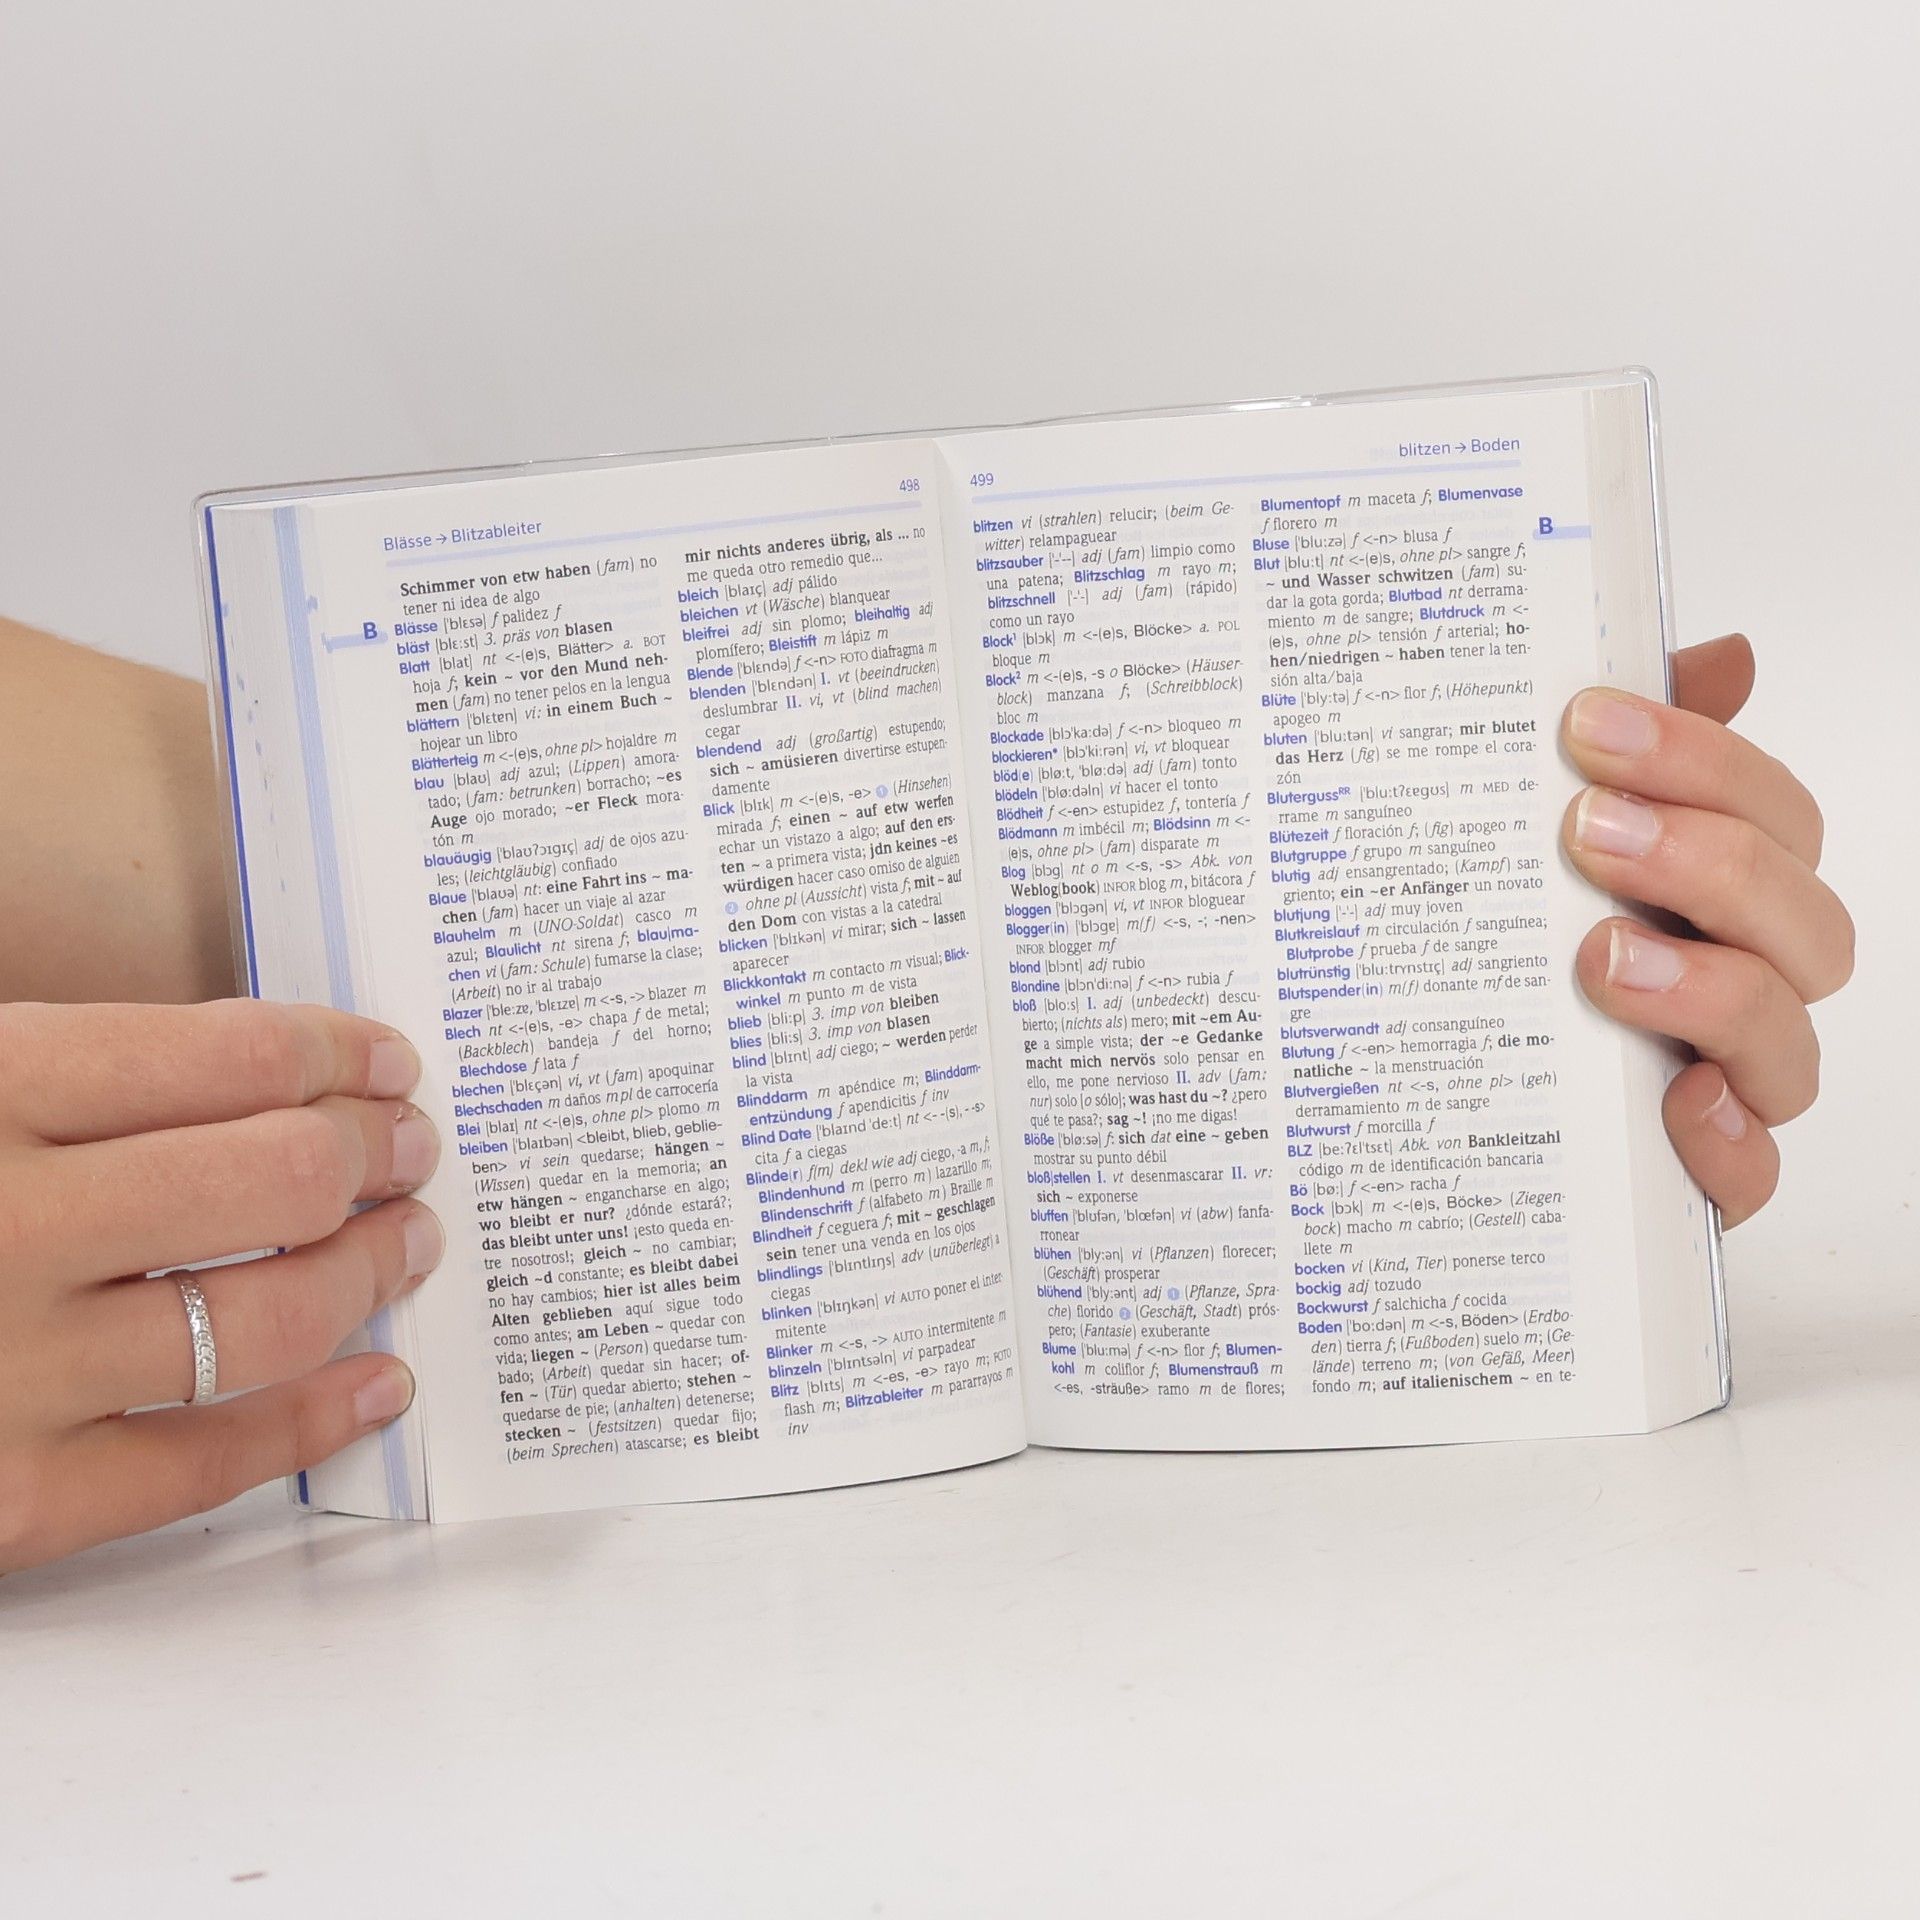 Blässe → Blitzableiter
498
B
Schimmer von etw haben (fam) no
tener ni idea de algo
Blässe ['blɛsə] f palidez f
bläst [blɛːst] 3. präs von blasen
Blatt [blat] nt <-(e)s, Blätter> a. BOT
hoja f; kein ~ vor den Mund neh-
men (fam) no tener pelos en la lengua
blättern ['blɛtɐn] vi: in einem Buch ~
hojear un libro
Blätterteig m <-(e)s, ohne pl> hojaldre m
blau [blaʊ] adj azul; (Lippen) amora-
tado; (fam: betrunken) borracho; ~es
Auge ojo morado; ~er Fleck mora-
tón m
blauäugig ['blaʊʔɔɪgɪç] adj de ojos azu-
les; (leichtgläubig) confiado
Blaue ['blaʊə] nt: eine Fahrt ins ~ ma-
chen (fam) hacer un viaje al azar
Blauhelm m (UNO-Soldat) casco m
azul; Blaulicht nt sirena f; blau|ma-
chen vi (fam: Schule) fumarse la clase;
(Arbeit) no ir al trabajo
Blazer ['bleːzɐ, 'blɛɪzɐ] m <-s, -> blazer m
Blech nt <-(e)s, -e> chapa f de metal;
(Backblech) bandeja f del horno;
Blechdose f lata f
blechen ['blɛçən] vi, vt (fam) apoquinar
Blechschaden m daños mpl de carrocería
Blei [blaɪ] nt <-(e)s, ohne pl> plomo m
bleiben ['blaɪbən] <bleibt, blieb, geblie-
ben> vi sein quedarse; hängen ~
(Wissen) quedar en la memoria; an
etw hängen ~ engancharse en algo;
wo bleibt er nur? ¿dónde estará?;
das bleibt unter uns! ¡esto queda en-
tre nosotros!; gleich ~ no cambiar;
gleich ~d constante; es bleibt dabei
no hay cambios; hier ist alles beim
Alten geblieben aquí sigue todo
como antes; am Leben ~ quedar con
vida; liegen ~ (Person) quedarse tum-
bado; (Arbeit) quedar sin hacer; of-
fen ~ (Tür) quedar abierto; stehen ~
quedarse de pie; (anhalten) detenerse;
stecken ~ (festsitzen) quedar fijo;
(beim Sprechen) atascarse; es bleibt
mir nichts anderes übrig, als ... no
me queda otro remedio que...
bleich [blaɪç] adj pálido
bleichen vt (Wäsche) blanquear
bleifrei adj sin plomo; bleihaltig adj
plomífero; Bleistift m lápiz m
Blende ['blɛndə] f <-n> FOTO diafragma m
blenden ['blɛndən] I. vt (beeindrucken)
deslumbrar II. vi, vt (blind machen)
cegar
blendend adj (großartig) estupendo;
sich ~ amüsieren divertirse estupen-
damente
Blick [blɪk] m <-(e)s, -e> 1 (Hinsehen)
mirada f; einen ~ auf etw werfen
echar un vistazo a algo; auf den ers-
ten ~ a primera vista; jdn keines ~es
würdigen hacer caso omiso de alguien
2 ohne pl (Aussicht) vista f; mit ~ auf
den Dom con vistas a la catedral
blicken ['blɪkən] vi mirar; sich ~ lassen
aparecer
Blickkontakt m contacto m visual; Blick-
winkel m punto m de vista
blieb [bliːp] 3. imp von bleiben
blies [bliːs] 3. imp von blasen
blind [blɪnt] adj ciego; ~ werden perder
la vista
Blinddarm m apéndice m; Blinddarm-
entzündung f apendicitis f inv
Blind Date ['blaɪnd 'deːt] nt <- -(s), - -s>
cita f a ciegas
Blinde(r) f(m) dekl wie adj ciego, -a m, f;
Blindenhund m (perro m) lazarillo m;
Blindenschrift f (alfabeto m) Braille m
Blindheit f ceguera f; mit ~ geschlagen
sein tener una venda en los ojos
blindlings ['blɪntlɪŋs] adv (unüberlegt) a
ciegas
blinken ['blɪŋkən] vi AUTO poner el inter-
mitente
Blinker m <-s, -> AUTO intermitente m
blinzeln ['blɪntsəln] vi parpadear
Blitz [blɪts] m <-es, -e> rayo m; FOTO
flash m; Blitzableiter m pararrayos m
inv
499
blitzen → Boden
B
blitzen vi (strahlen) relucir; (beim Ge-
witter) relampaguear
blitzsauber ['-'--] adj (fam) limpio como
una patena; Blitzschlag m rayo m;
blitzschnell ['-'-] adj (fam) (rápido)
como un rayo
Block¹ [blɔk] m <-(e)s, Blöcke> a. POL
bloque m
Block² m <-(e)s, -s o Blöcke> (Häuser-
block) manzana f; (Schreibblock)
bloc m
Blockade [blɔ'kaːdə] f <-n> bloqueo m
blockieren* [blɔ'kiːrən] vi, vt bloquear
blöd(e) [bløːt, 'bløːdə] adj (fam) tonto
blödeln ['bløːdəln] vi hacer el tonto
Blödheit f <-en> estupidez f, tontería f
Blödmann m imbécil m; Blödsinn m <-
(e)s, ohne pl> (fam) disparate m
Blog [blɔg] nt o m <-s, -s> Abk. von
Weblog(book) INFOR blog m, bitácora f
bloggen ['blɔgən] vi, vt INFOR bloguear
Blogger(in) ['blɔgɐ] m(f) <-s, -; -nen>
INFOR blogger mf
blond [blɔnt] adj rubio
Blondine [blɔn'diːnə] f <-n> rubia f
bloß [bloːs] I. adj (unbedeckt) descu-
bierto; (nichts als) mero; mit ~em Au-
ge a simple vista; der ~e Gedanke
macht mich nervös solo pensar en
ello, me pone nervioso II. adv (fam:
nur) solo [o sólo]; was hast du ~? ¿pero
qué te pasa?; sag ~! ¡no me digas!
Blöße ['bløːsə] f: sich dat eine ~ geben
mostrar su punto débil
bloß|stellen I. vt desenmascarar II. vr:
sich ~ exponerse
bluffen ['blʊfən, 'blœfən] vi (abw) fanfa-
rronear
blühen ['blyːən] vi (Pflanzen) florecer;
(Geschäft) prosperar
blühend ['blyːənt] adj 1 (Pflanze, Spra-
che) florido 2 (Geschäft, Stadt) prós-
pero; (Fantasie) exuberante
Blume ['bluːmə] f <-n> flor f; Blumen-
kohl m coliflor f; Blumenstrauß m
<-es, -sträuße> ramo m de flores;
Blumentopf m maceta f; Blumenvase
f florero m
Bluse ['bluːzə] f <-n> blusa f
Blut [bluːt] nt <-(e)s, ohne pl> sangre f;
~ und Wasser schwitzen (fam) su-
dar la gota gorda; Blutbad nt derrama-
miento m de sangre; Blutdruck m <-
(e)s, ohne pl> tensión f arterial; ho-
hen/niedrigen ~ haben tener la ten-
sión alta/baja
Blüte ['blyːtə] f <-n> flor f; (Höhepunkt)
apogeo m
bluten ['bluːtən] vi sangrar; mir blutet
das Herz (fig) se me rompe el cora-
zón
Blutergussᴿᴿ ['bluːtʔɛɐgʊs] m MED de-
rrame m sanguíneo
Blütezeit f floración f; (fig) apogeo m
Blutgruppe f grupo m sanguíneo
blutig adj ensangrentado; (Kampf) san-
griento; ein ~er Anfänger un novato
blutjung ['-'-] adj muy joven
Blutkreislauf m circulación f sanguínea;
Blutprobe f prueba f de sangre
blutrünstig ['bluːtrʏnstɪç] adj sangriento
Blutspender(in) m(f) donante mf de san-
gre
blutsverwandt adj consanguíneo
Blutung f <-en> hemorragia f; die mo-
natliche ~ la menstruación
Blutvergießen nt <-s, ohne pl> (geh)
derramamiento m de sangre
Blutwurst f morcilla f
BLZ [beːʔɛl'tsɛt] Abk. von Bankleitzahl
código m de identificación bancaria
Bö [bøː] f <-en> racha f
Bock [bɔk] m <-(e)s, Böcke> (Ziegen-
bock) macho m cabrío; (Gestell) caba-
llete m
bocken vi (Kind, Tier) ponerse terco
bockig adj tozudo
Bockwurst f salchicha f cocida
Boden ['boːdən] m <-s, Böden> (Erdbo-
den) tierra f; (Fußboden) suelo m; (Ge-
lände) terreno m; (von Gefäß, Meer)
fondo m; auf italienischem ~ en te-